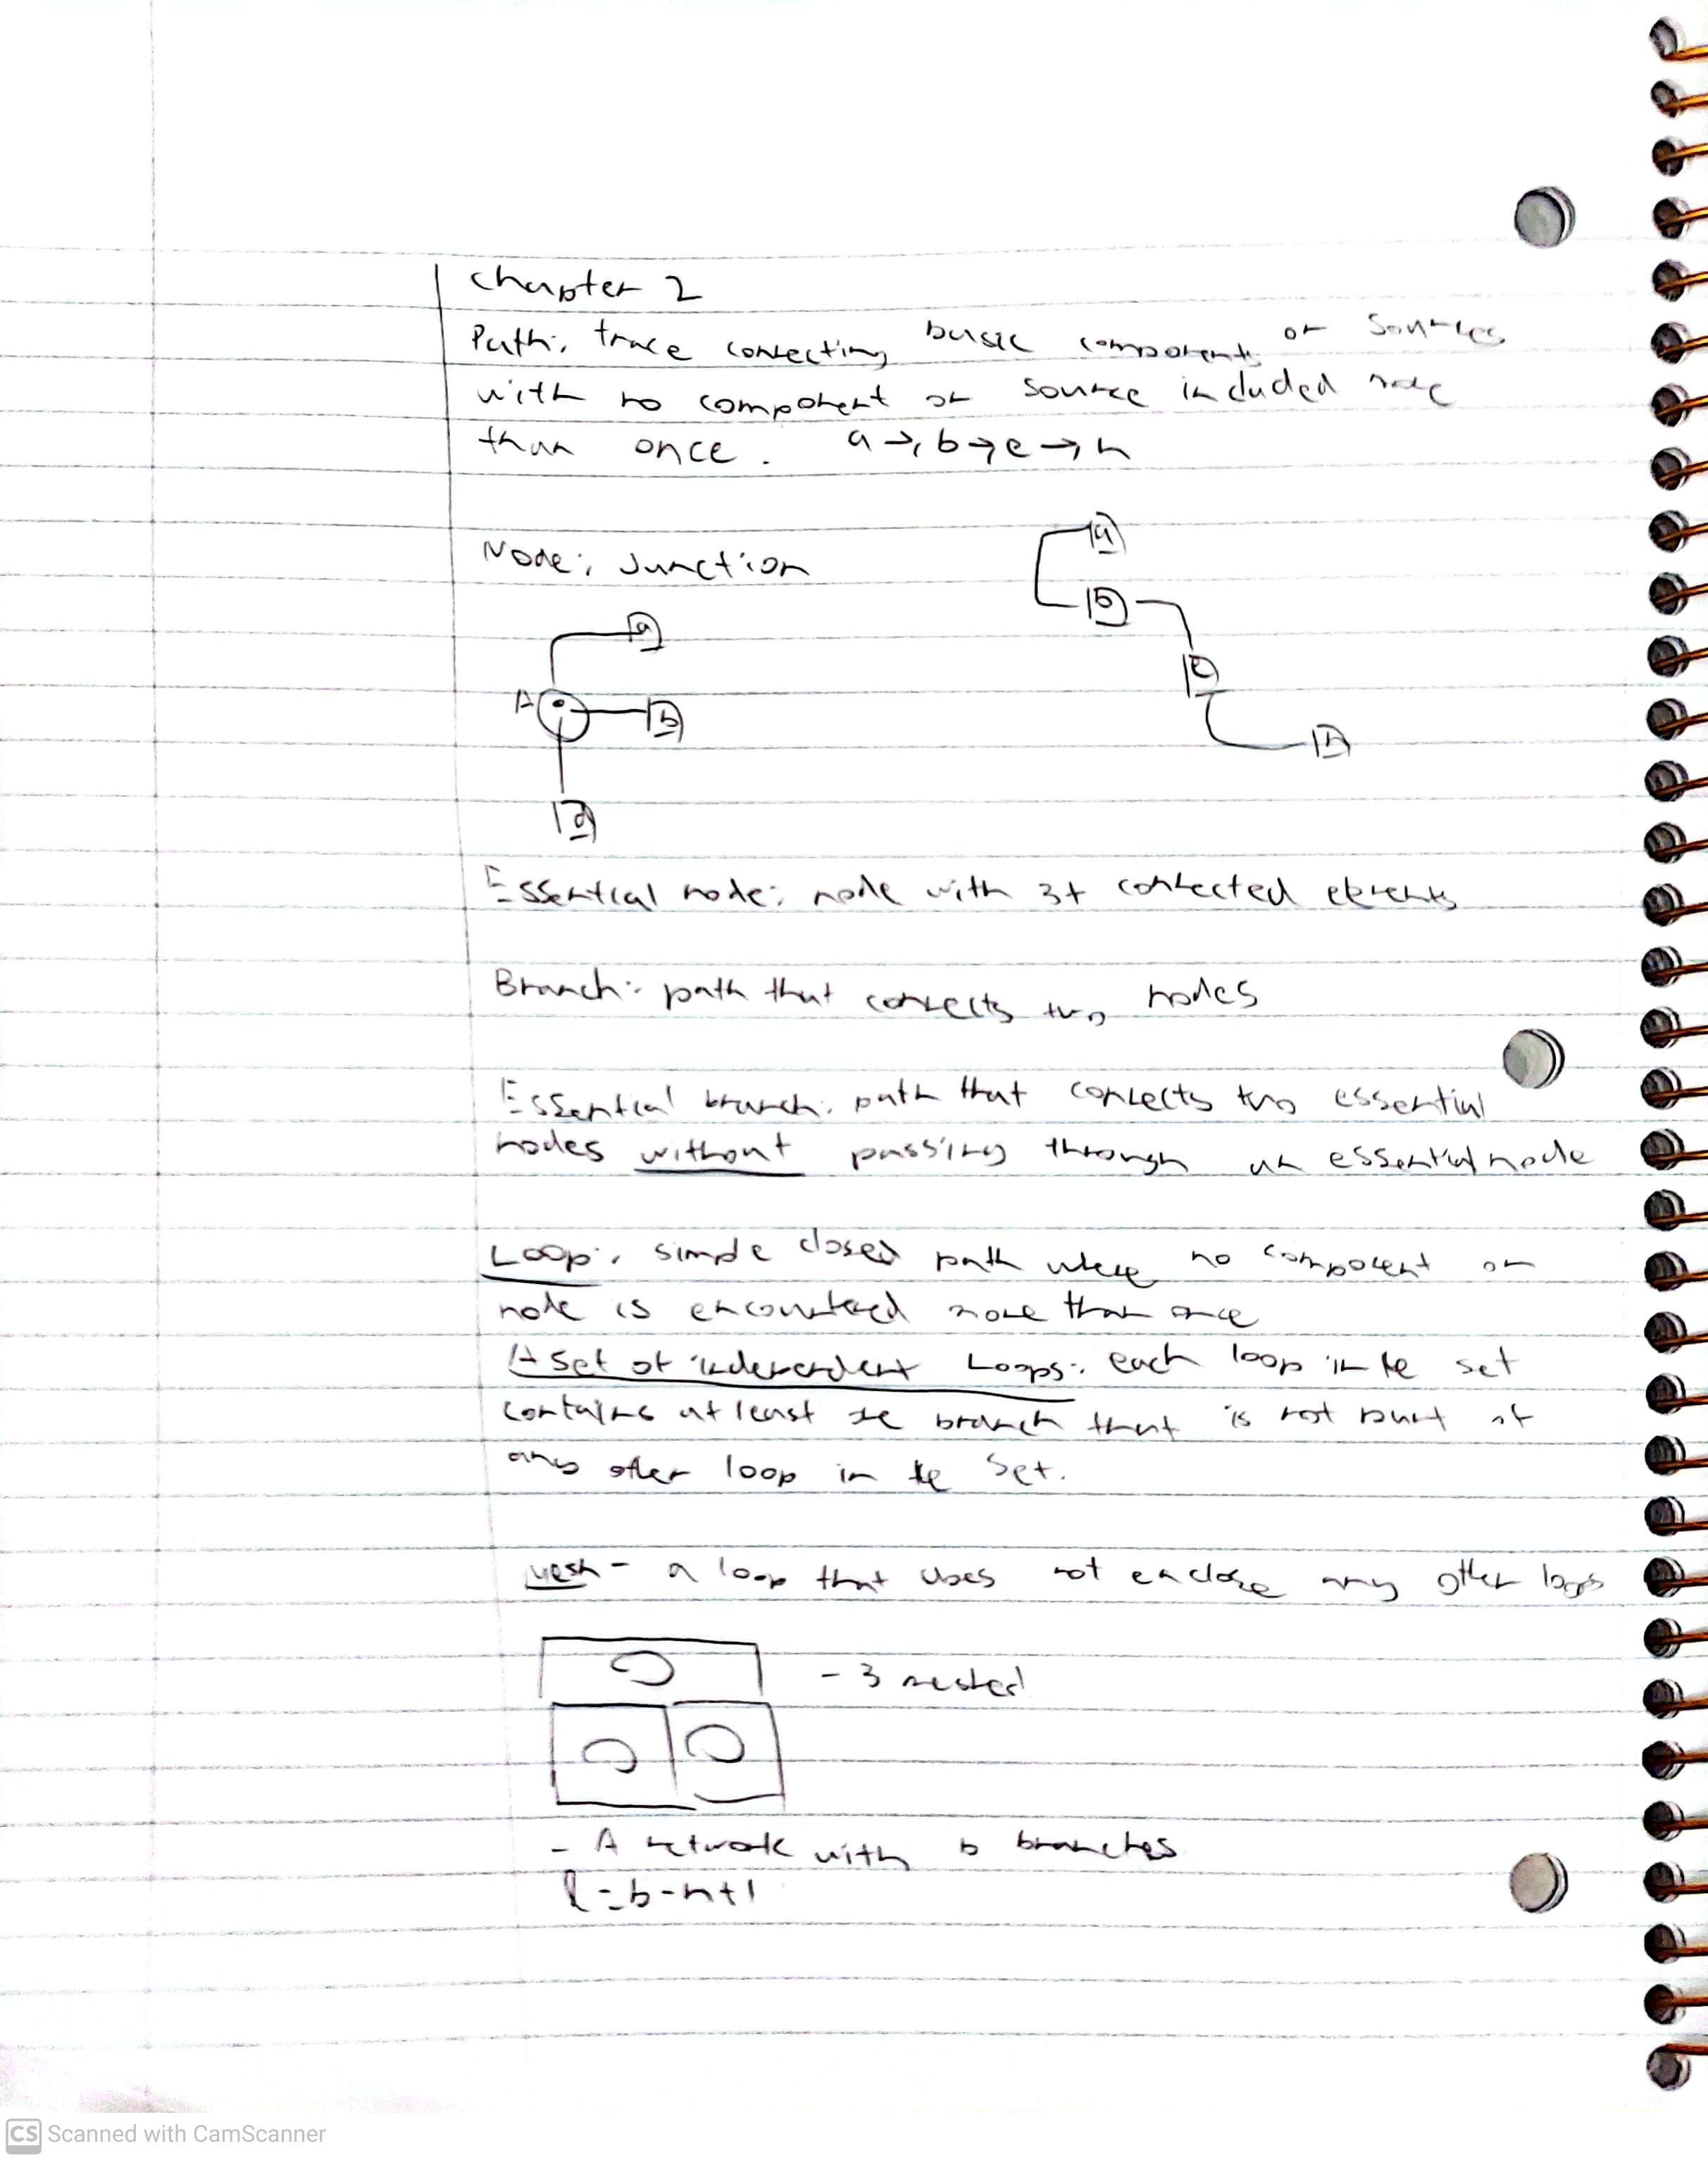 Chapter 2
Path: trace connecting basic components or sources
with no component or source included more
than once. a → b → e → h
Node: Junction
a
b
e
h
a
A
b
d
Essential node: node with 3+ connected elements
Branch: path that connects two nodes
Essential branch: path that connects two essential
nodes without passing through an essential node
Loop: simple closed path where no component or
node is encountered more than once
A set of independent Loops: each loop in the set
contains at least one branch that is not part of
any other loop in the set.
Mesh - a loop that does not enclose any other loops
- 3
- A network with b branches
l = b-n+1
CS Scanned with CamScanner